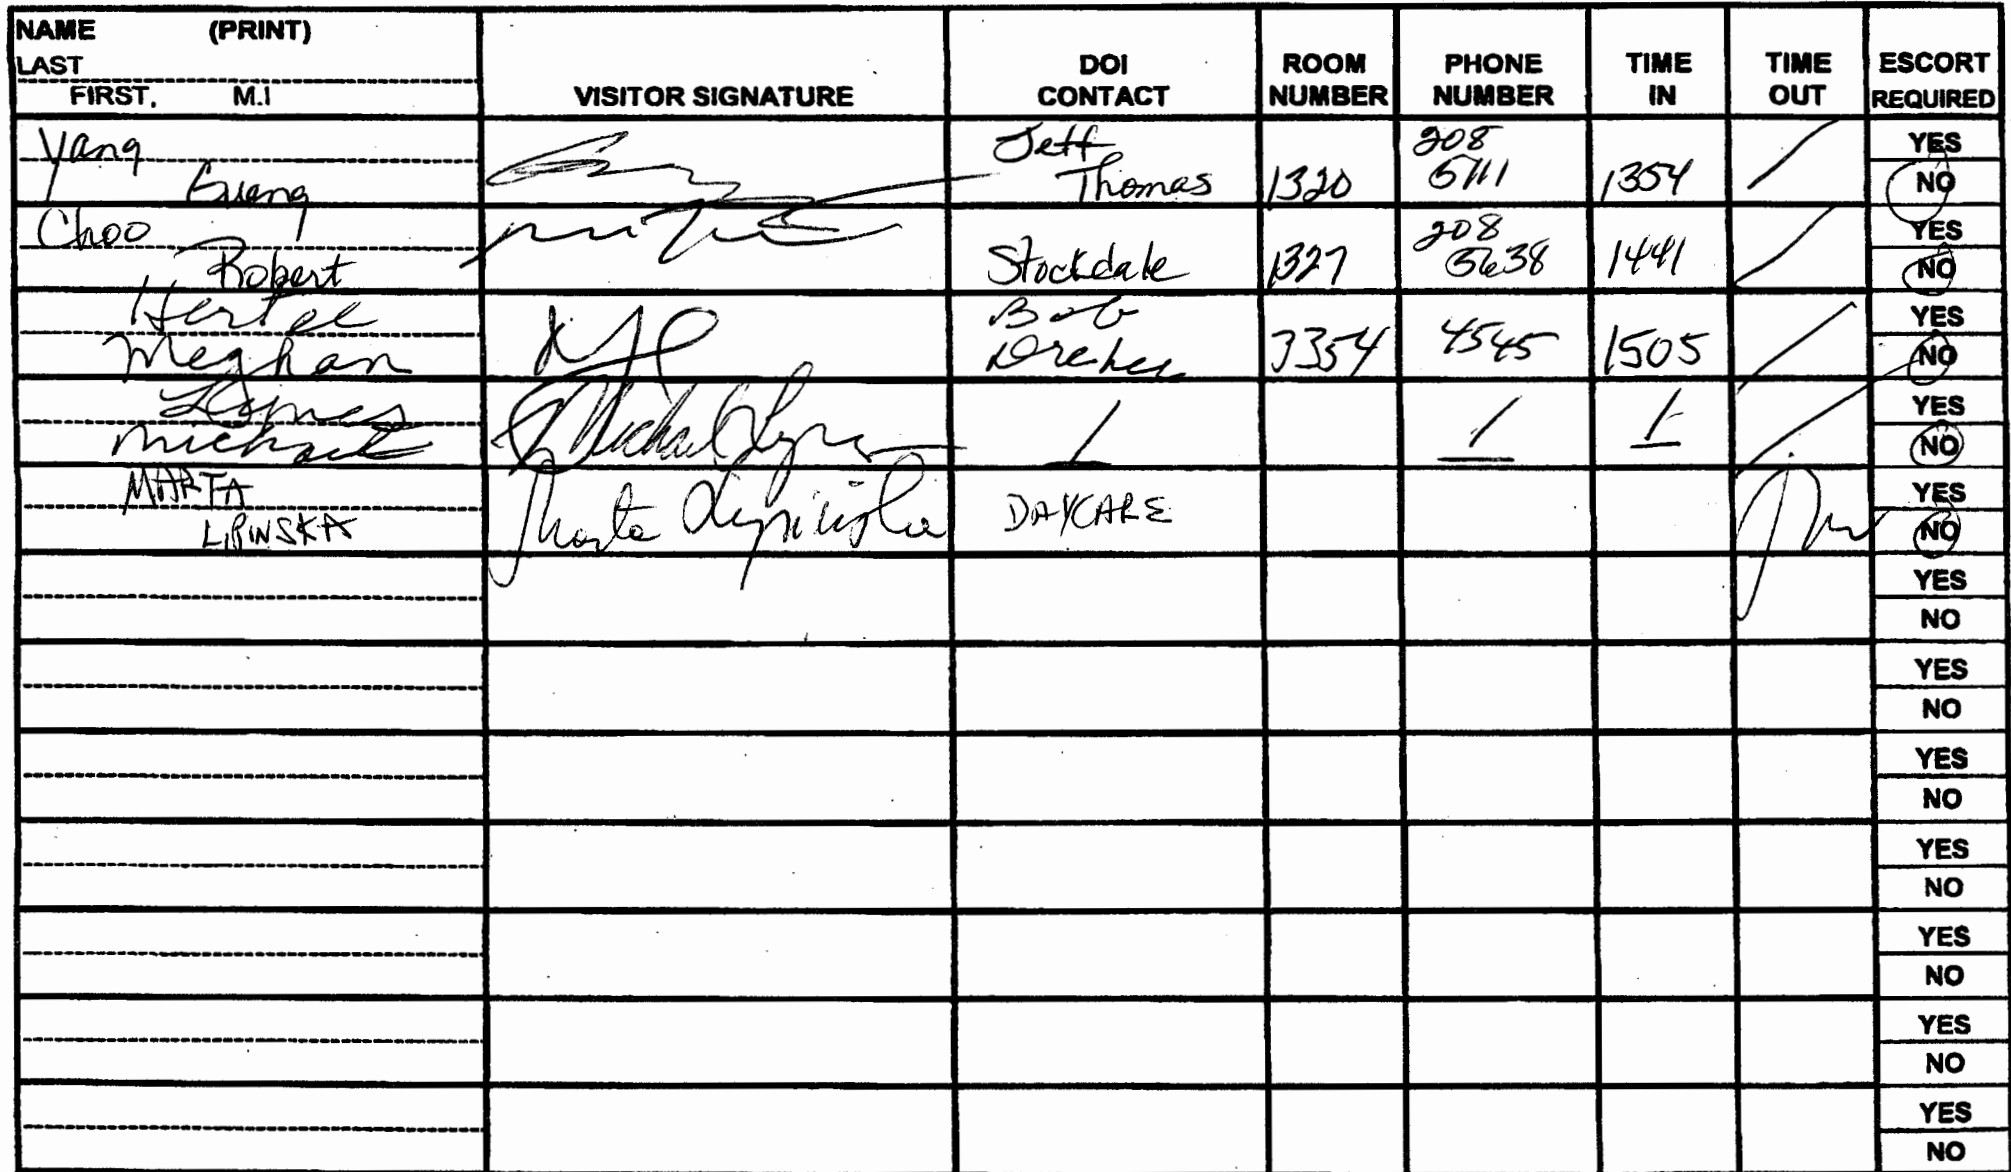 NAME (PRINT)
LAST
FIRST, M.I
VISITOR SIGNATURE
DOI CONTACT
ROOM NUMBER
PHONE NUMBER
TIME IN
TIME OUT
ESCORT REQUIRED
Yang
Guang
Jeff
Thomas
1320
208
5111
1354
YES
NO
Choo
Robert
Stockdale
1327
208
5638
1441
YES
NO
Hertel
Meghan
Bob
3354
4545
1505
YES
NO
Michael
Michael
YES
NO
MARTA
LIPINSKA
Marta Lipinska
DAYCARE
YES
NO
YES
NO
YES
NO
YES
NO
YES
NO
YES
NO
YES
NO
YES
NO